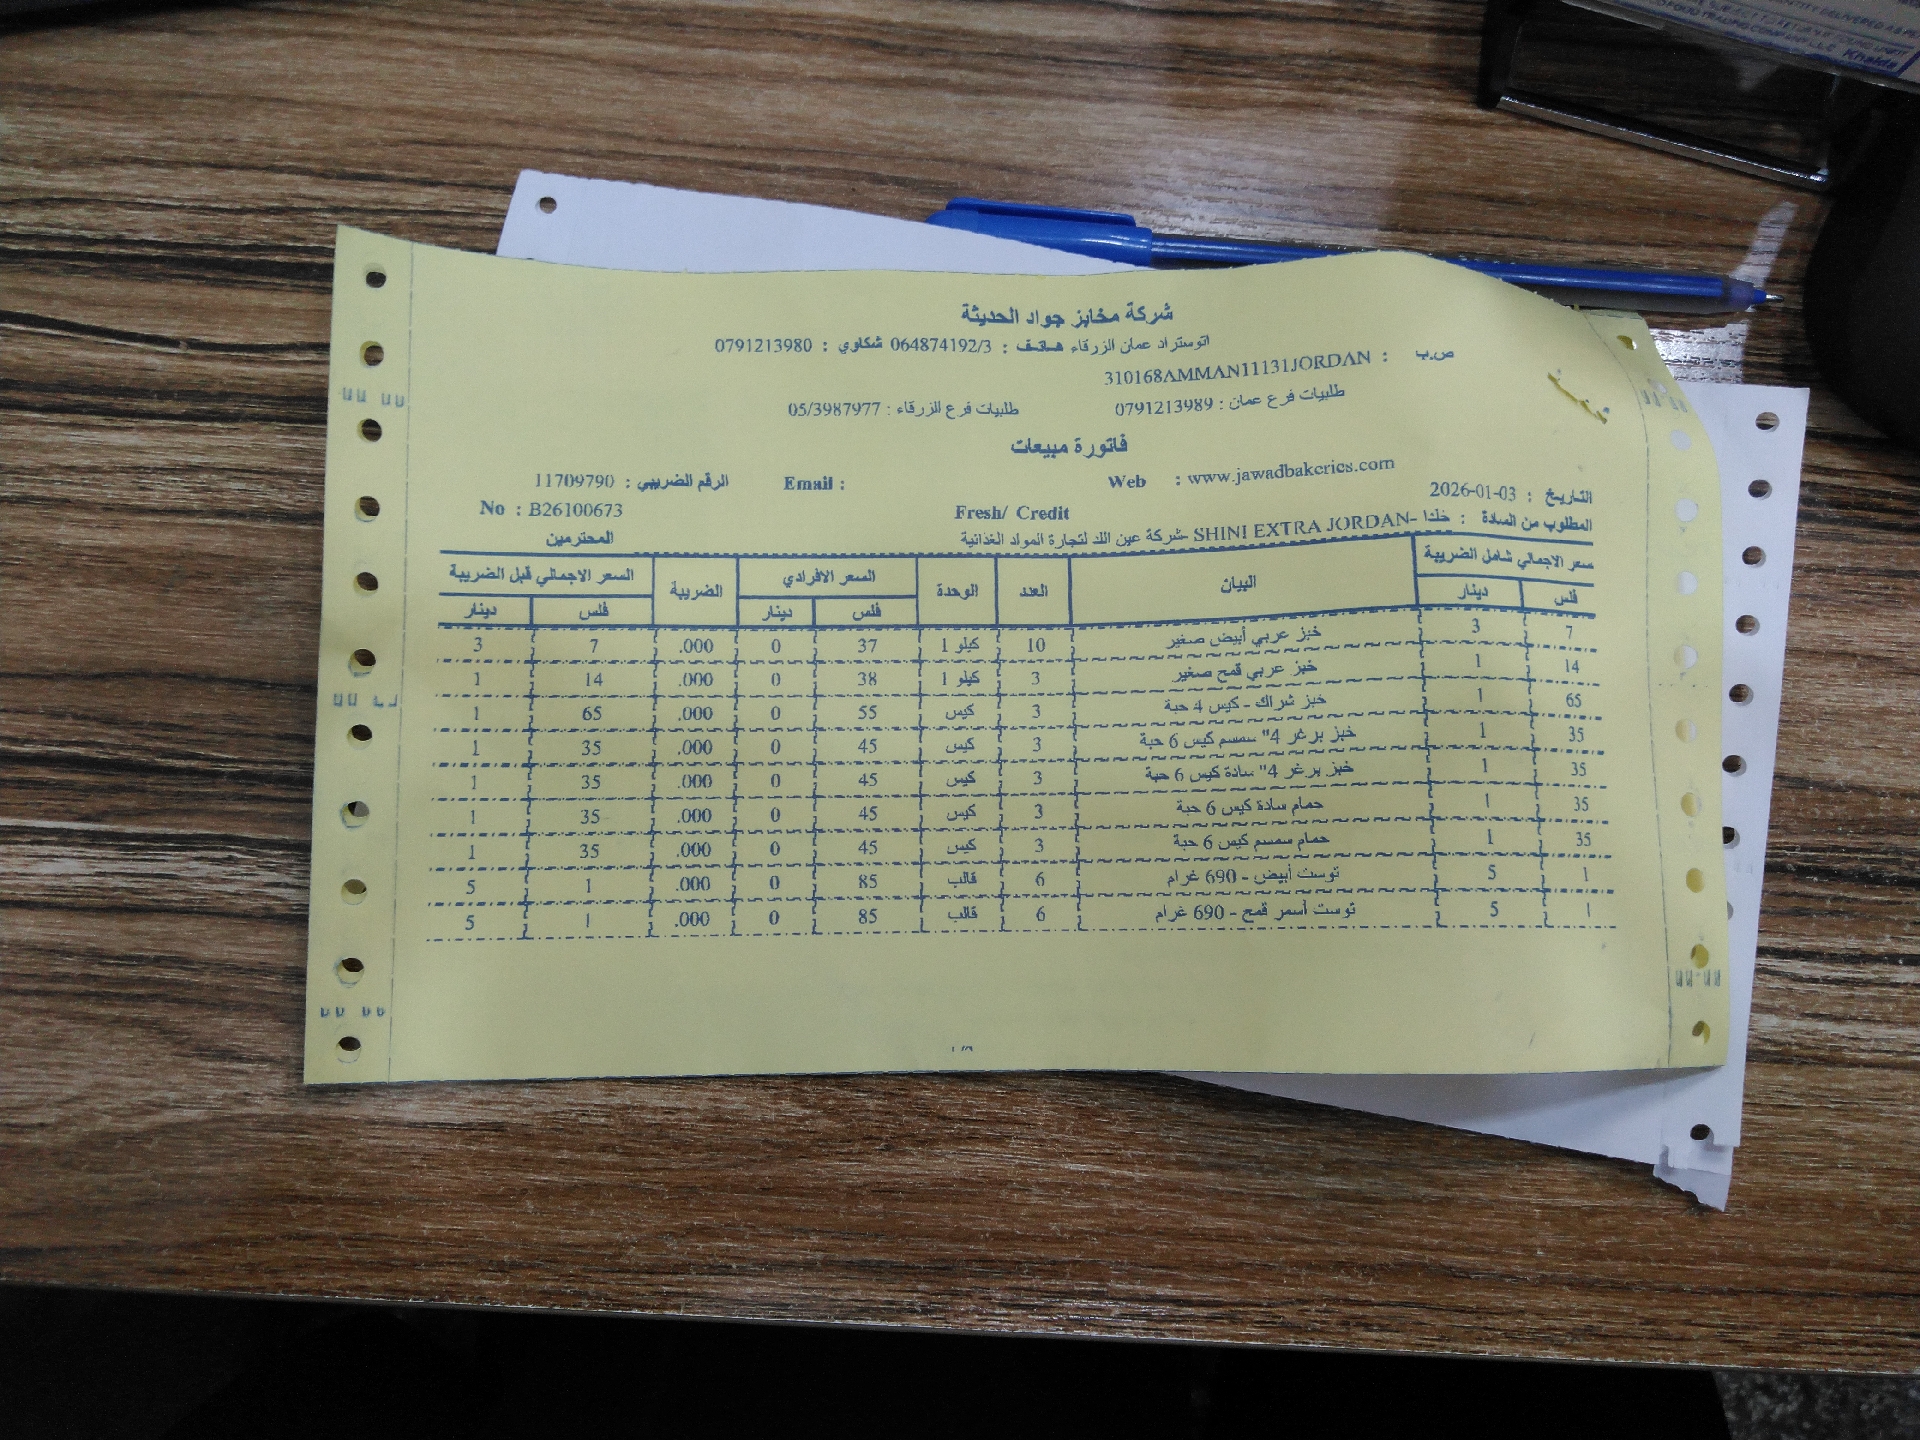 شركة مخابز جواد الحديثة
اتوستراد عمان الزرقاء هاتف : 064874192/3 شكاوي : 0791213980
ص.ب : 310168AMMAN11131JORDAN
طلبيات فرع عمان : 0791213989 طلبيات فرع الزرقاء : 05/3987977
فاتورة مبيعات
Web : www.jawadbakeries.com Email : الرقم الضريبي : 11709790
التاريخ : 2026-01-03 Fresh/ Credit No : B26100673
المطلوب من السادة : خلدا -SHINI EXTRA JORDAN -شركة عين اللد لتجارة المواد الغذائية المحترمين
سعر الاجمالي شامل الضريبة البيان العدد الوحدة السعر الافرادي الضريبة السعر الاجمالي قبل الضريبة
فلس دينار فلس دينار فلس دينار
7 3 خبز عربي أبيض صغير 10 كيلو 1 37 0 .000 7 3
14 1 خبز عربي قمح صغير 3 كيلو 1 38 0 .000 14 1
65 1 خبز شراك - كيس 4 حبة 3 كيس 55 0 .000 65 1
35 1 خبز برغر 4" سمسم كيس 6 حبة 3 كيس 45 0 .000 35 1
35 1 خبز برغر 4" سادة كيس 6 حبة 3 كيس 45 0 .000 35 1
35 1 حمام سادة كيس 6 حبة 3 كيس 45 0 .000 35 1
35 1 حمام سمسم كيس 6 حبة 3 كيس 45 0 .000 35 1
1 5 توست أبيض - 690 غرام 6 قالب 85 0 .000 1 5
1 5 توست أسمر قمح - 690 غرام 6 قالب 85 0 .000 1 5
Khalda